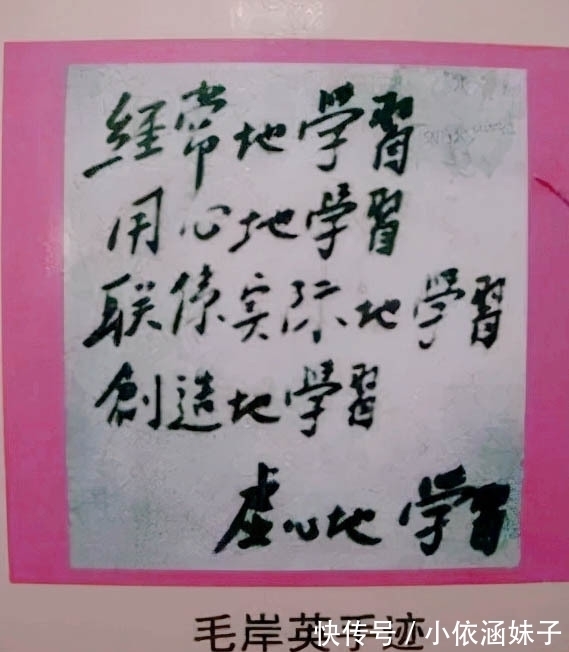 經常地学習
用心地学習
联係实际地学習
創造地學習
虚心地学習
毛岸英手迹
快传号/小依涵妹子